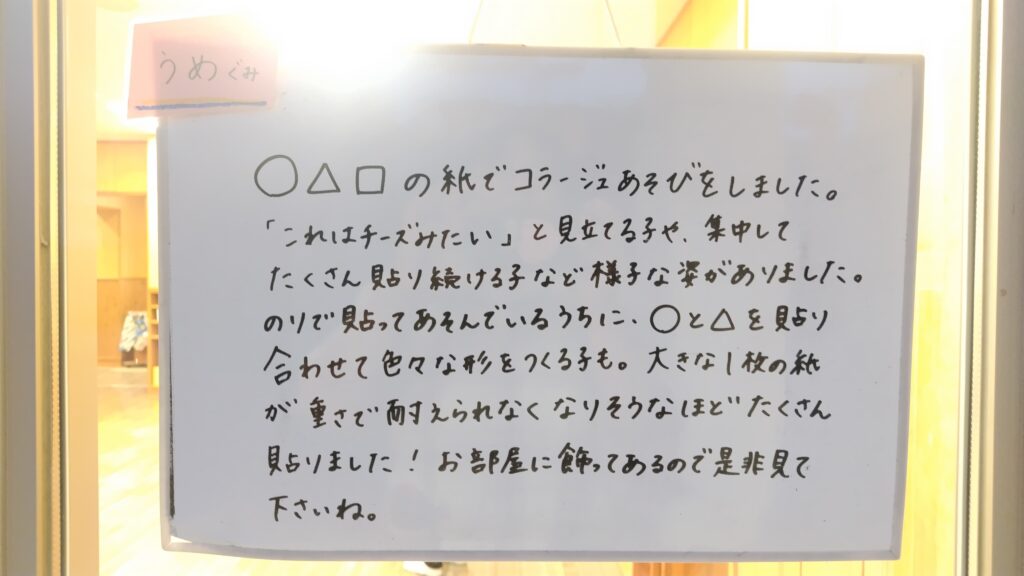 うめぐみ
○△□の紙でコラージュあそびをしました。
「これはチーズみたい」と見立てる子や、集中して
たくさん貼り続ける子など様子な姿がありました。
のりで貼ってあそんでいるうちに、○と△を貼り
合わせて色々な形をつくる子も。大きな1枚の紙
が重さで耐えられなくなりそうなほどたくさん
貼りました！お部屋に飾ってあるので是非見て
下さいね。